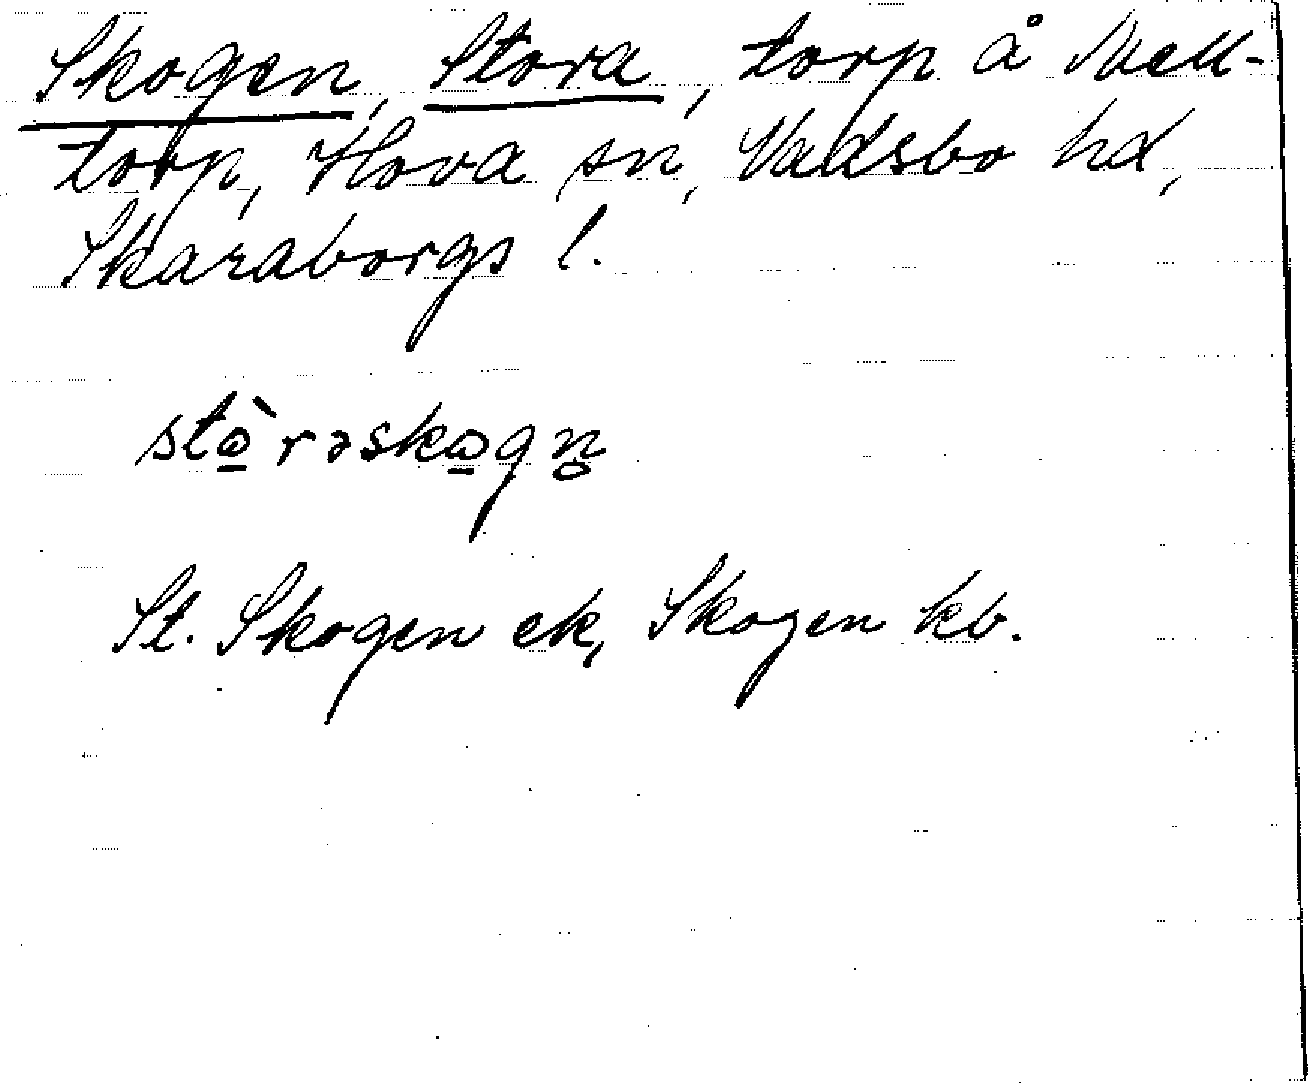 Skogen, Stora, torp å Mell-
torp, Hova sn, Vadsbo hd,
Skaraborgs l.
stὼ̲rəskω̲gn̥
St. Skogen ek, Skogen kb.